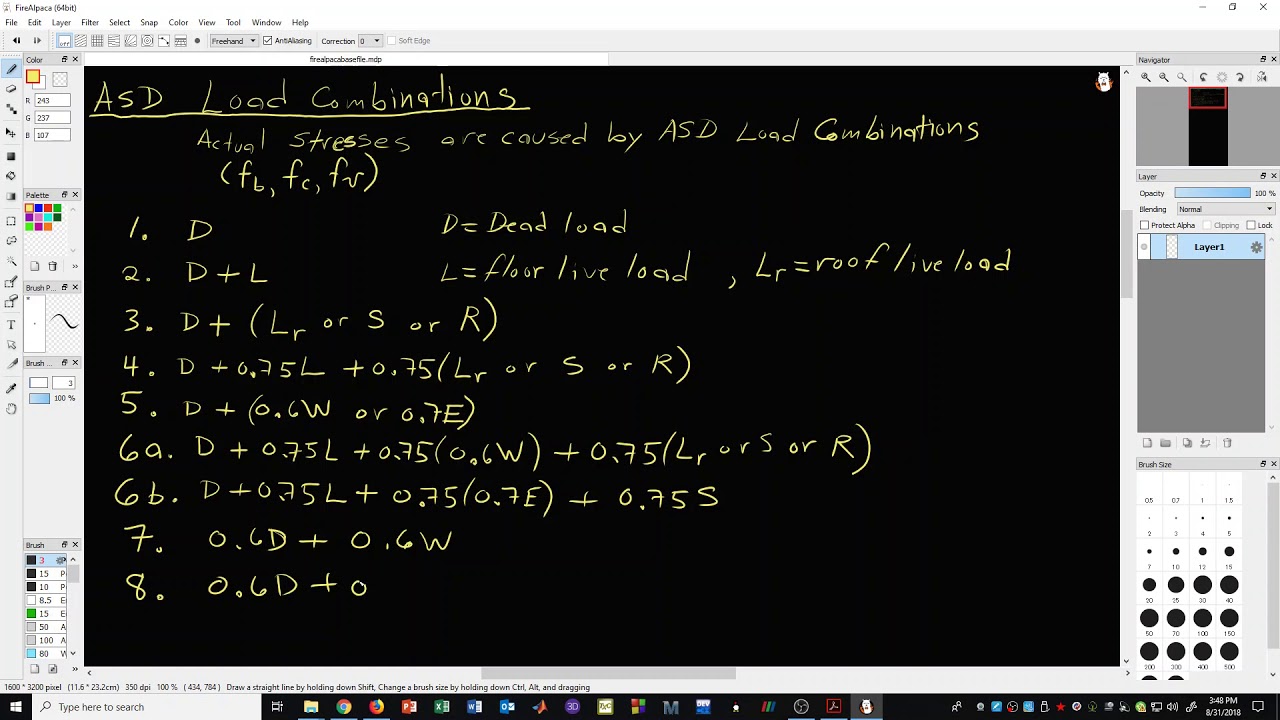 FireAlpaca (64bit)
File Edit Layer Filter Select Snap Color View Tool Window Help
off Freehand AntiAliasing Correction 0 Soft Edge
firealpacabasefile.mdp
Color
R 243
G 237
B 107
Palette
Brush P...
Brush ...
3
100 %
Brush
3
15 P
10 P
8.5 E
15 E
50 A
100 A
80 W
ASD Load Combinations
Actual stresses are caused by ASD Load Combinations
(fb, fc, fv)
1. D D = Dead load
2. D + L L = floor live load , Lr = roof live load
3. D + (Lr or S or R)
4. D + 0.75L + 0.75(Lr or S or R)
5. D + (0.6W or 0.7E)
6a. D + 0.75L + 0.75(0.6W) + 0.75(Lr or S or R)
6b. D + 0.75L + 0.75(0.7E) + 0.75S
7. 0.6D + 0.6W
8. 0.6D + 0
Navigator
Layer
Opacity 100 %
Blending Normal
Protect Alpha Clipping Lock
Layer1
Brush Size
0.5 0.7 1 1.5
2 3 4 5
7 10 12 15
20 25 30 40
50 70 100 150
200 300
1600 * 3200 pixel (11.6 * 23.2cm) 350 dpi 100 % ( 434, 784 ) Draw a straight line by holding down Shift, Change a brush size by holding down Ctrl, Alt, and dragging
Type here to search
3:48 PM
8/31/2018